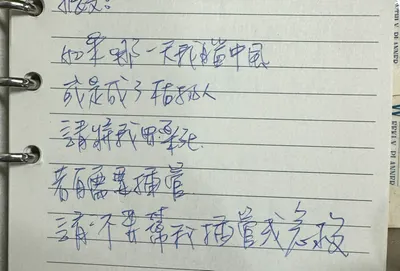 如果哪一天我腦中風
或是成了植物人
請將我安樂死
若有需要插管
請不要幫我插管或急救